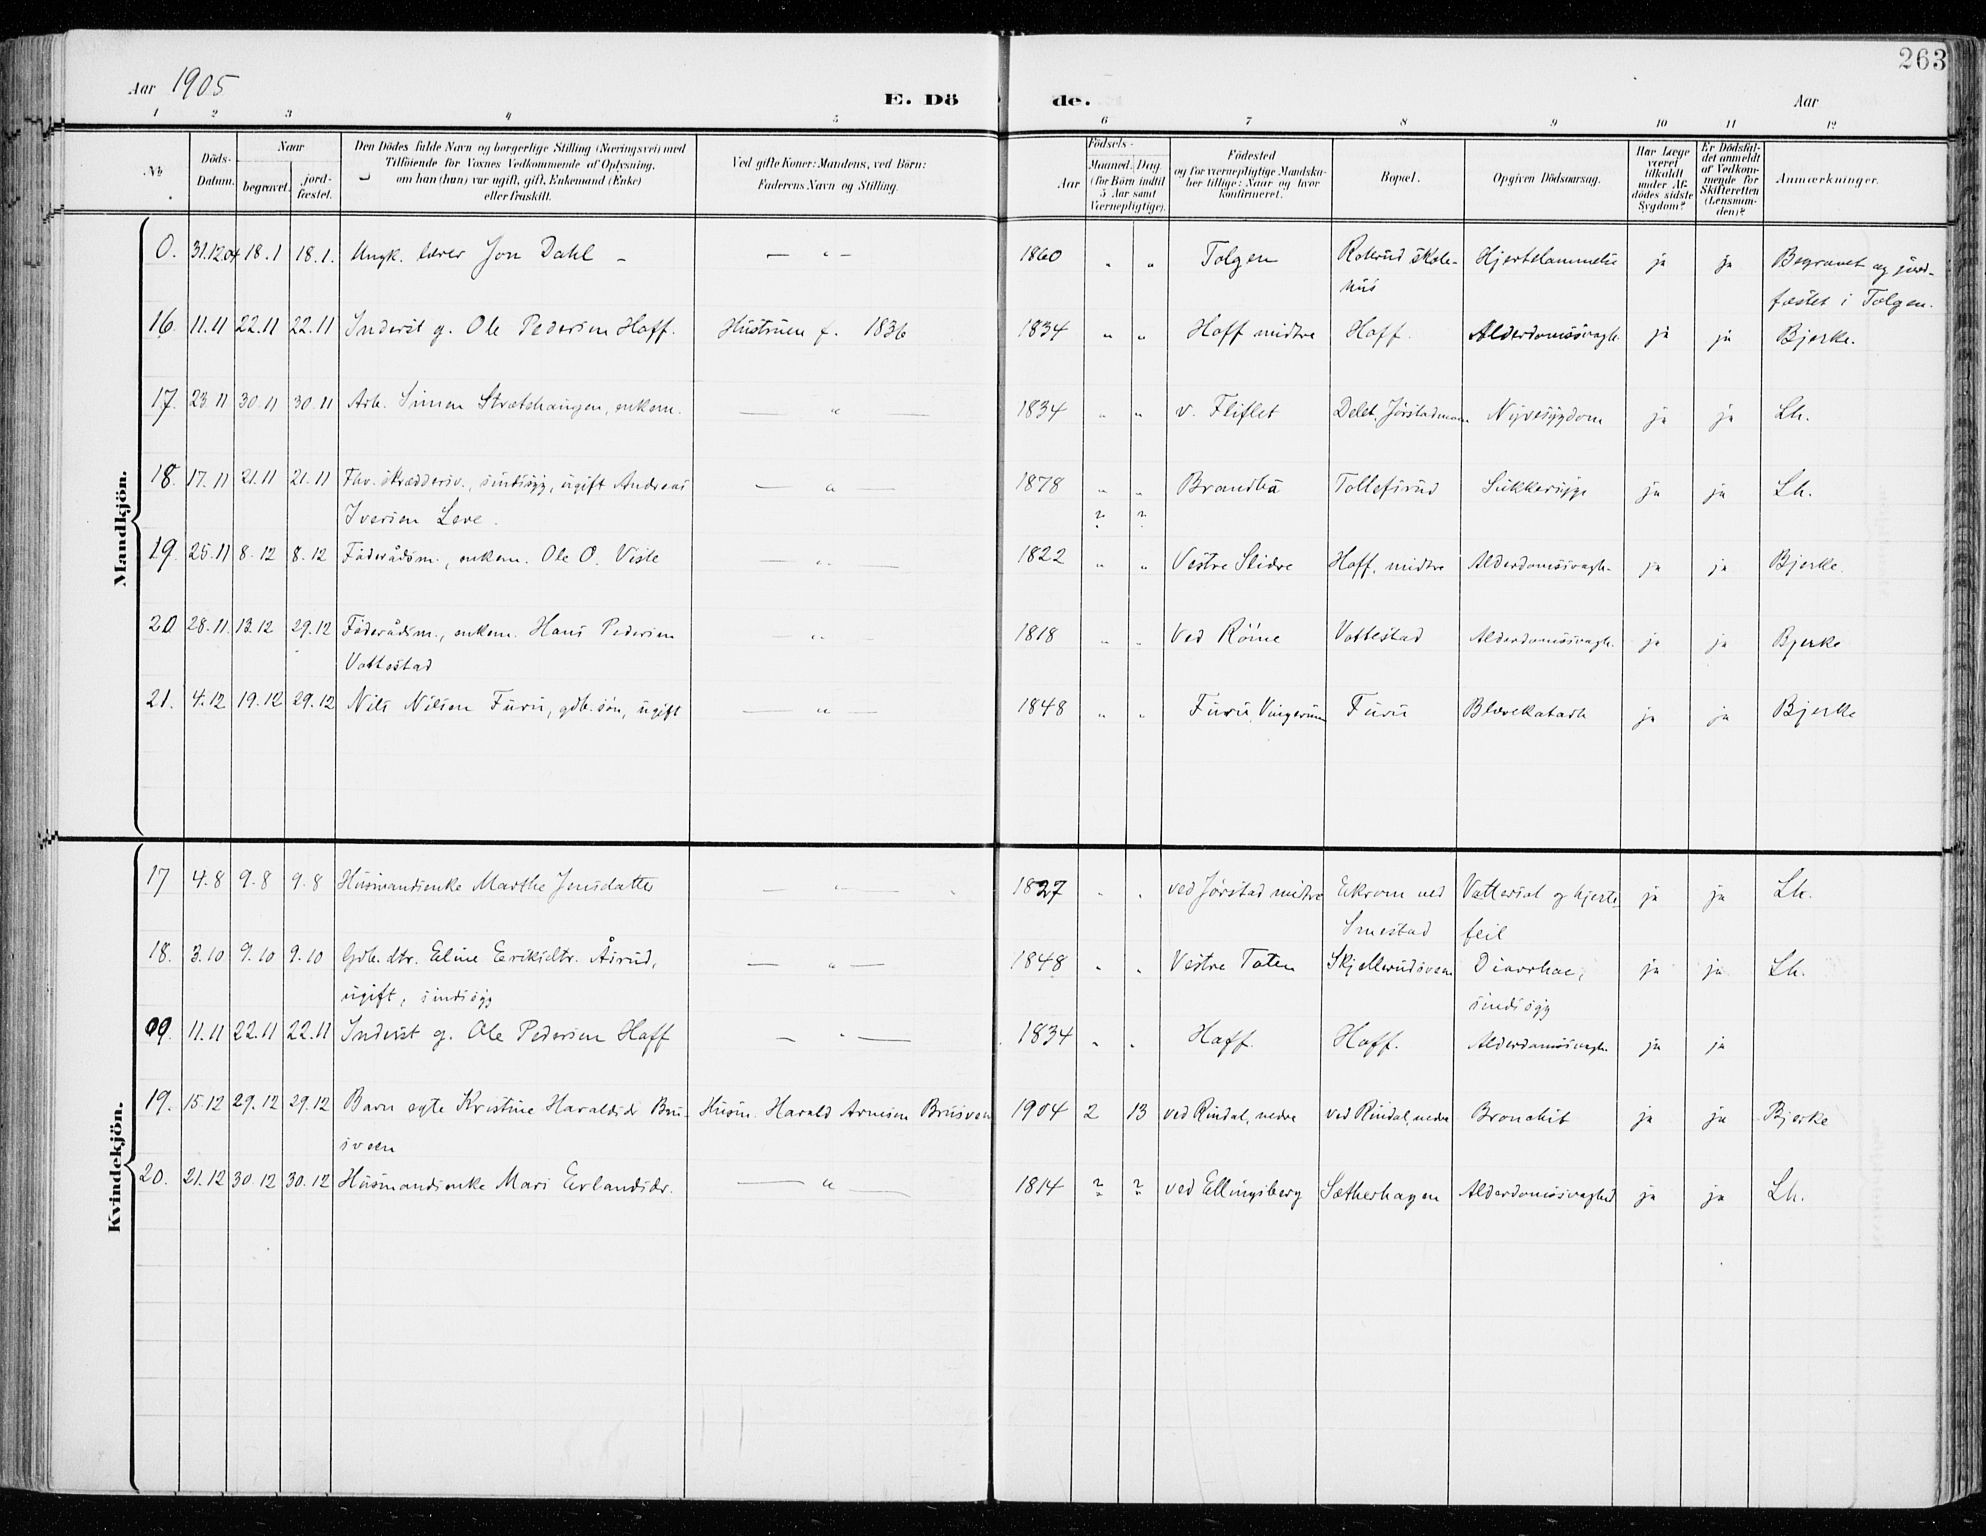 263
Aar 1905
E. Dö de.
Aar
1 2 3 4 5 6 7 8 9 10 11 12
№
Döds-Datum.
Naar
begravet.
jord-fæstet.
Den Dödes fulde Navn og borgerlige Stilling (Næringsvei) med
Tilföiende for Voxnes Vedkommende af Oplysning,
om han (hun) var ugift, gift, Enkemand (Enke)
eller fraskilt.
Ved gifte Koner: Mandens, ved Börn:
Faderens Navn og Stilling.
Födsels-
Aar
Maaned. Dag
(for Börn indtil
5 Aar samt
Værnepligtige).
Födested
og for værnepligtige Mandska-
ber tillige: Naar og hvor
konfirmeret.
Bopæl.
Opgiven Dödsaarsag.
Har Læge
været
tilkaldt
under Af-
dödes sidste
Sygdom?
Er Dödsfal-
det anmeldt
af Vedkom-
mende for
Skifteretten
(Lensman-
den)?
Anmærkninger.
Mandkjön.
0. 31.12.04 18.1 18.1. Ungk. lærer Jon Dahl – — „ — 1860 „ „ Tolgen Rokrud skole- Hjertelammelse ja ja Begravet og jord-
hus fæstet i Tolgen.
16. 11.11 22.11 22.11 Inderst g. Ole Pedersen Hoff. Hustruen f. 1836 1834 „ „ Hoff midtre Hoff. Alderdomssvagh. ja ja Bjerke.
17. 23.11 30.11 30.11 Arb. Simen Strætshaugen, enkem. — „ — 1834 „ „ v. Fliflet Delet. Jørstadmoen Nyresygdom ja ja Lh.
18. 17.11 21.11 21.11 Fhv. skræddersv., sindssyg, ugift Andreas — „ — 1878 „ „ Brandbu Tollefsrud Sukkersyge ja ja Lh.
Iversen Leve. ? ?
19. 25.11 8.12 8.12 Føderådsm., enkem. Ole O. Visle — „ — 1822 „ „ Vestre Slidre Hoff, midtre Alderdomssvagh. ja ja Bjerke.
20 28.11 13.12 29.12 Føderådsm., enkem. Hans Pedersen — „ — 1818 „ „ Ved Røine Vottestad Alderdomssvagh. ja ja Bjerke
Vottestad
21. 4.12 19.12 29.12 Nils Nilsen Furu, gdb. søn, ugift — „ — 1848 „ „ Furu, Vingerum Furu Blærekatarh ja ja Bjerke
Kvindekjön.
17 4.8 9.8 9.8 Husmandsenke Marthe Jensdatter — „ — 1827 „ „ ved Jørstad midtre Eikrom ved Vattersot og hjerte- ja ja Lh.
Smestad feil
18. 3.10 9.10 9.10 Gdb. dtr. Eline Eriksdtr. Åsrud, — „ — 1848 „ „ Vestre Toten Skjellerudsveen Diarrhoe, ja ja Lh.
ugift, sindssyg sindssyg
09. 11.11 22.11 22.11 Inderst g. Ole Pedersen Hoff — „ — 1834 „ „ Hoff. Hoff. Alderdomssvagh. ja ja
19. 15.12 29.12 29.12 Barn egte Kristine Haraldsdr Bru- Husm. Harald Arnesen Brusveen 1904 2 13 ved Rindal, nedre ved Rindal, nedre Bronchit ja ja Bjerke
sveen
20. 21.12 30.12 30.12 Husmandsenke Mari Erlandsdr. — „ — 1814 ? ? ved Ellingsberg Sætherhagen Alderdomssvaghed ja ja Lh.